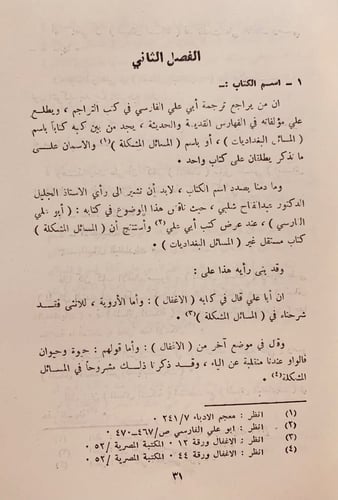 الفصل الثاني
١ ــ اسم الكتاب :ــ
ان من يراجع ترجمة أبي علي الفارسي في كتب التراجم ، ويطلع
علي مؤلفاته في الفهارس القديمة والحديثة ، يجد من بين كتبه كتاباً باسم
( المسائل البغداديات ) ، أو باسم ( المسائل المشكلة )(١) والاسمان علــــى
ما نذكر يطلقان على كتاب واحد ٠
وما دمنا بصدد اسم الكتاب ، لابد أن نشير الى رأي الاستاذ الجليل
الدكتور عبدالفتاح شلبي ، حيث ناقش هذا الموضوع في كتابه : ( أبو علي
الفارسي ) ، عند عرض كتب أبي علي(٢) وأستنتج أن ( المسائل المشكلة )
كتاب مستقل غير ( المسائل البغداديات ) ٠
وقد بنى رأيه هذا على :
ان أبا علي قال في كتابه ( الاغفال ) : وأما الأروية ، للانثى فقـــد
شرحناه في ( المسائل المشكلة )(٣) ٠
وقال في موضع آخر من ( الاغفال ) : وأما قولهم : حيوة وحيوان
فالواو عندنا منقلبة عن الياء ، وقــد ذكرنا ذلــك مشروحاً في المسائل
المشكلة(٤) ٠
(١) انظر : معجم الادباء ٧/ ٢٤١ ٠
(٢) انظر : ابو علي الفارسي ص/٤٦٧ــ٤٧٠ ٠
(٣) انظر : الاغفال ورقة ١٢ ٠ المكتبة المصرية /٥٢ ٠
(٤) انظر : الاغفال ورقة ٤٤ ٠ المكتبة المصرية /٥٢ ٠
٣١